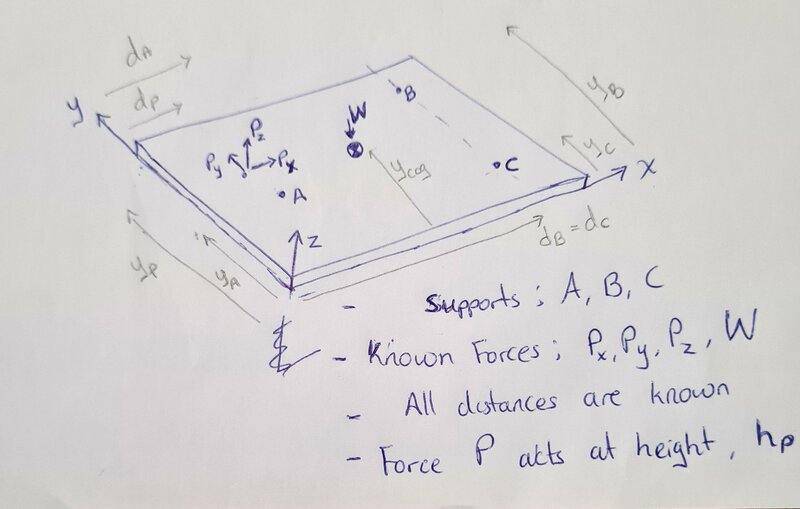 dA
dP
y
yB
B
W
Pz
Py
Px
yC
C
x
ycog
A
z
dB = dC
yP
yA
- Supports ; A, B, C
- Known Forces ; Px, Py, Pz, W
- All distances are known
- Force P acts at height, hp